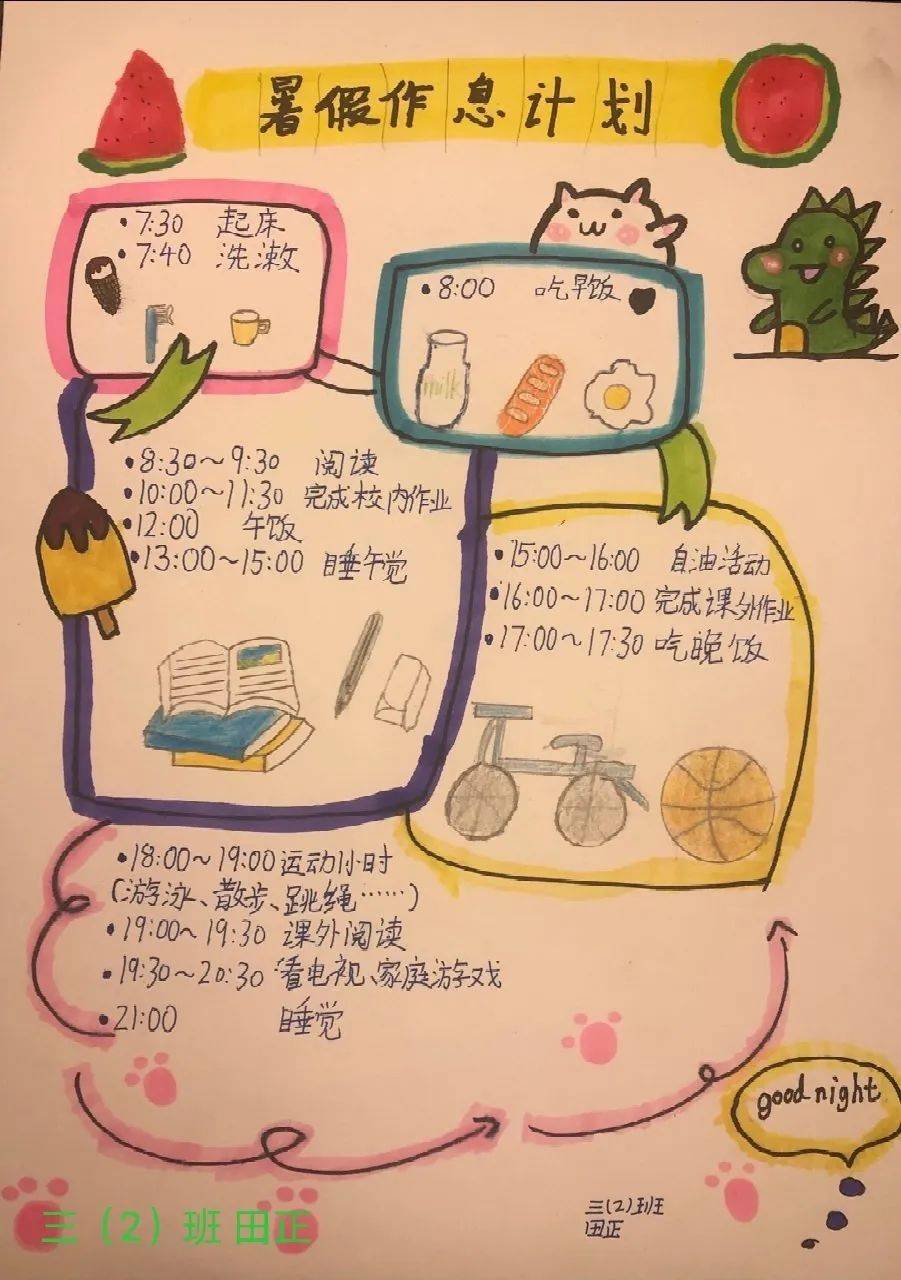 暑假作息计划
•7:30 起床
•7:40 洗漱
•8:00 吃早饭
milk
•8:30~9:30 阅读
•10:00~11:30 完成校内作业
•12:00 午饭
•13:00~15:00 睡午觉
•15:00~16:00 自油活动
•16:00~17:00 完成课外作业
•17:00~17:30 吃晚饭
•18:00~19:00 运动小时
(游泳、散步、跳绳……)
•19:00~19:30 课外阅读
•19:30~20:30 看电视、家庭游戏
•21:00 睡觉
good night
三(2)班
田正
三（2）班 田正